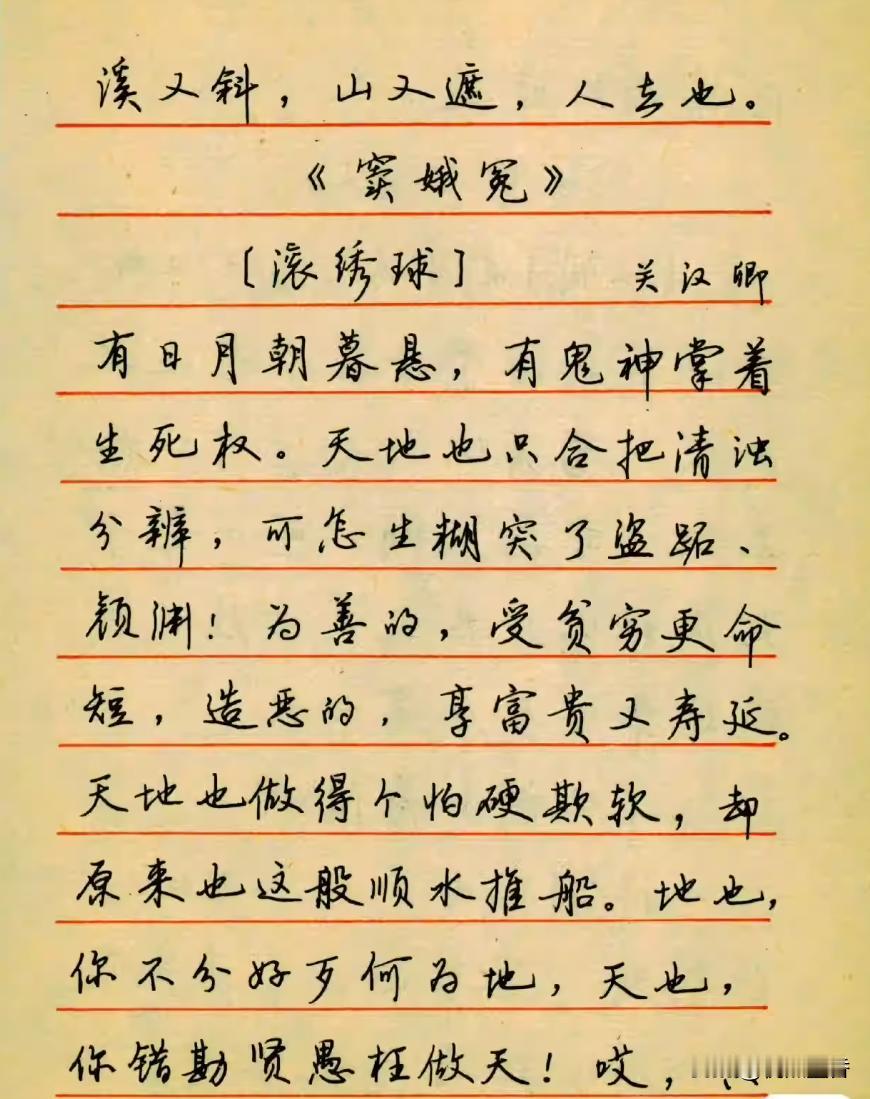 溪又斜，山又遮，人去也。
《窦娥冤》
[滚绣球] 关汉卿
有日月朝暮悬，有鬼神掌着
生死权。天地也只合把清浊
分辨，可怎生糊突了盗跖、
颜渊！为善的，受贫穷更命
短，造恶的，享富贵又寿延。
天地也做得个怕硬欺软，却
原来也这般顺水推船。地也，
你不分好歹何为地，天也，
你错勘贤愚枉做天！哎，